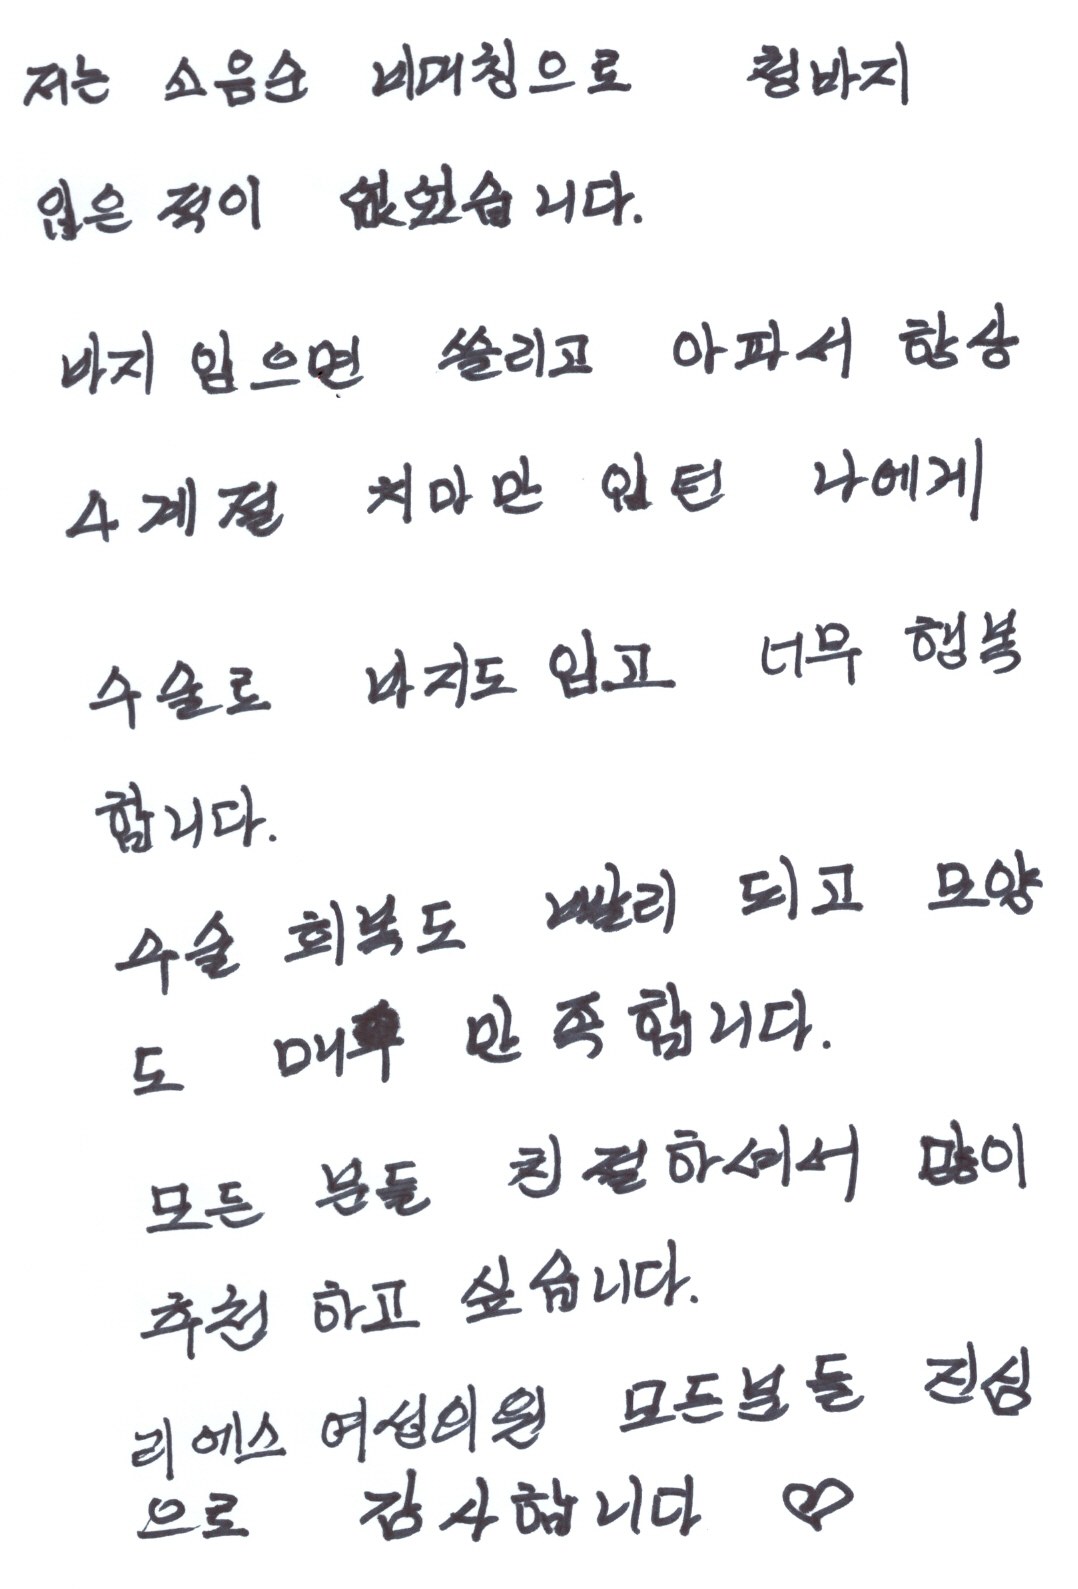 저는 소음순 비대칭으로 청바지
입은 적이 없었습니다.
바지 입으면 쓸리고 아파서 항상
4계절 치마만 입던 나에게
수술로 바지도 입고 너무 행복
합니다.
수술 회복도 빨리 되고 모양
도 매우 만족합니다.
모든 분들 친절하셔서 많이
추천 하고 싶습니다.
리에스 여성의원 모든분들 진심
으로 감사합니다 ♡